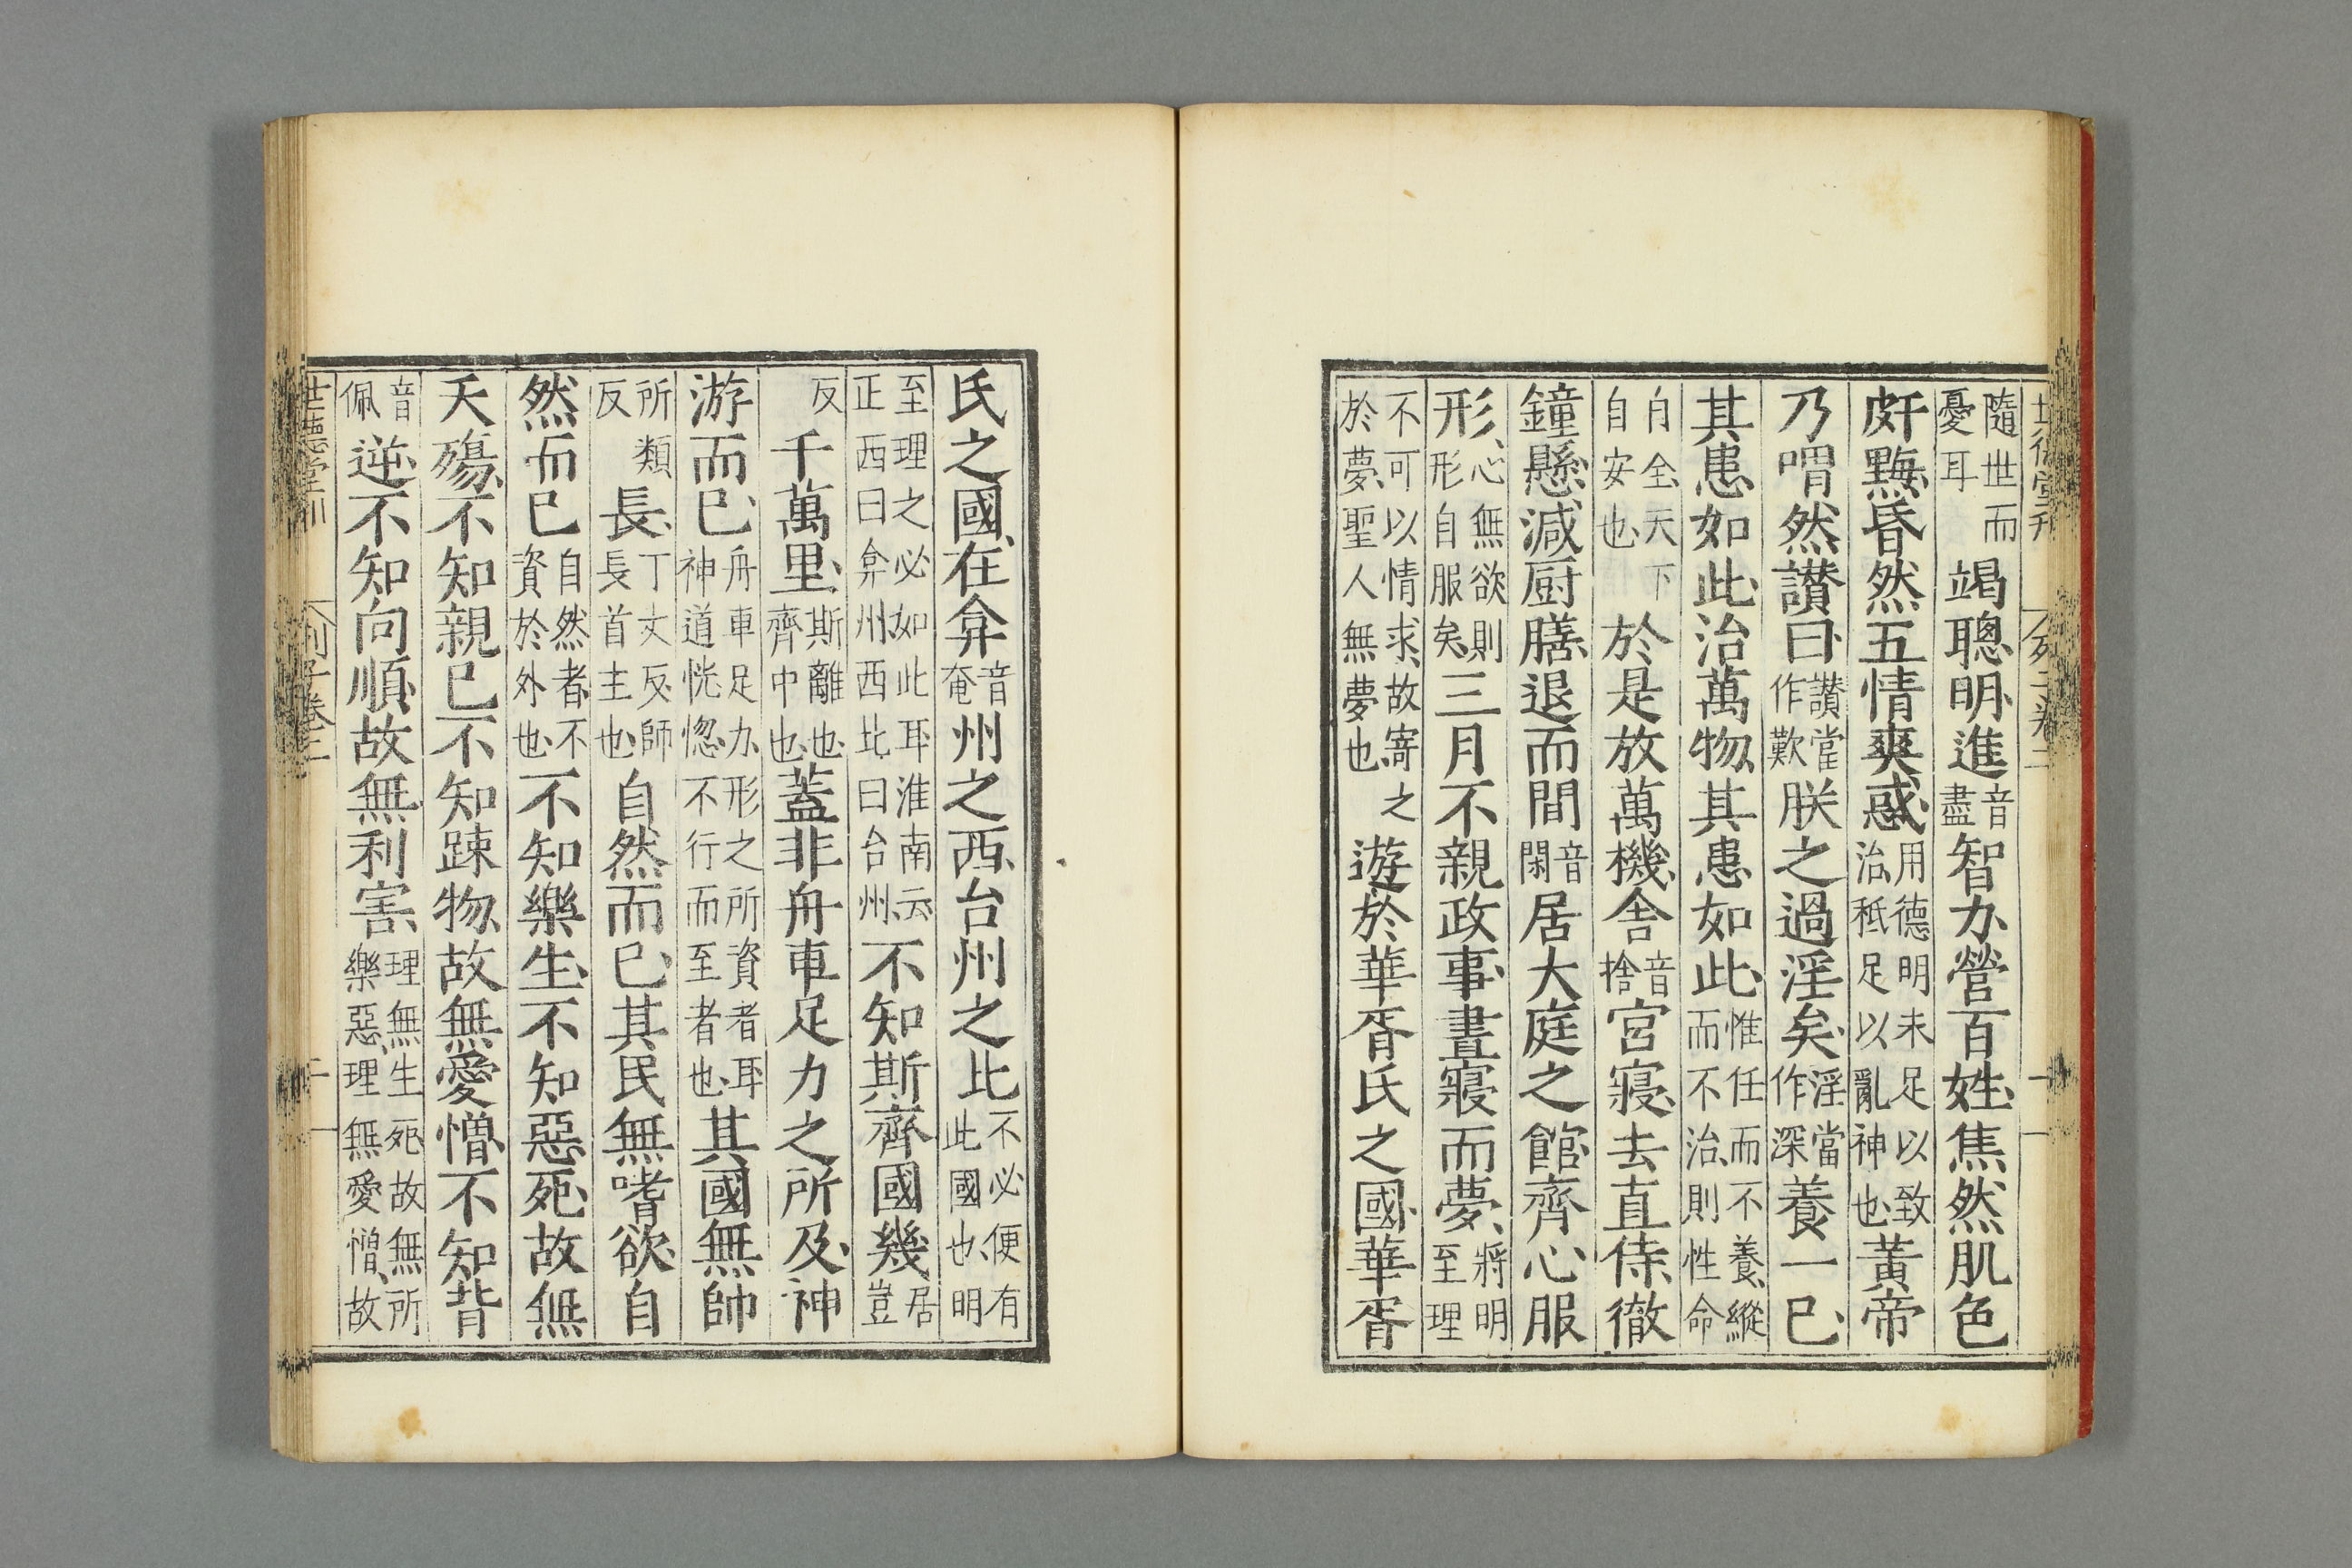 世德堂刊 列子卷二 二
隨世而憂耳竭聰明進音盡智力營百姓焦然肌色
皯黣昏然五情爽惑用德明未足以致治秖足以亂神也黃帝
乃喟然讃曰讃當作歎朕之過淫矣淫當作深養一已
其患如此治萬物其患如此惟任而不養縱而不治則性命
自全天下自安也於是放萬機舍音捨宮寢去直侍徹
鐘懸減厨膳退而間音閑居大庭之館齊心服
形心無欲則形自服矣三月不親政事晝寢而夢將明至理
不可以情求故寄之於夢聖人無夢也遊於華胥氏之國華胥
氏之國在弇音奄州之西台州之北不必便有此國也明
至理之必如此耳淮南云正西曰弇州西北曰台州不知斯齊國幾居豈
反千萬里斯離也齊中也蓋非舟車足力之所及神
游而已舟車足力形之所資者耳神道恍惚不行而至者也其國無帥
所類反長丁丈反師長首主也自然而已其民無嗜欲自
然而已自然者不資於外也不知樂生不知惡死故無
夭殤不知親已不知踈物故無愛憎不知背
音佩逆不知向順故無利害理無生死故無所樂惡理無愛憎故
世德堂刊 列子卷二